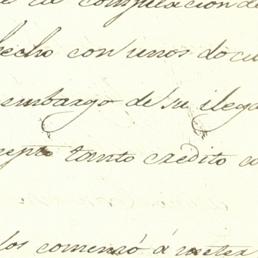 la compilacion de
hecho con unos docu
embargo de su ilega
cepto tanto credito a
los comenzó á